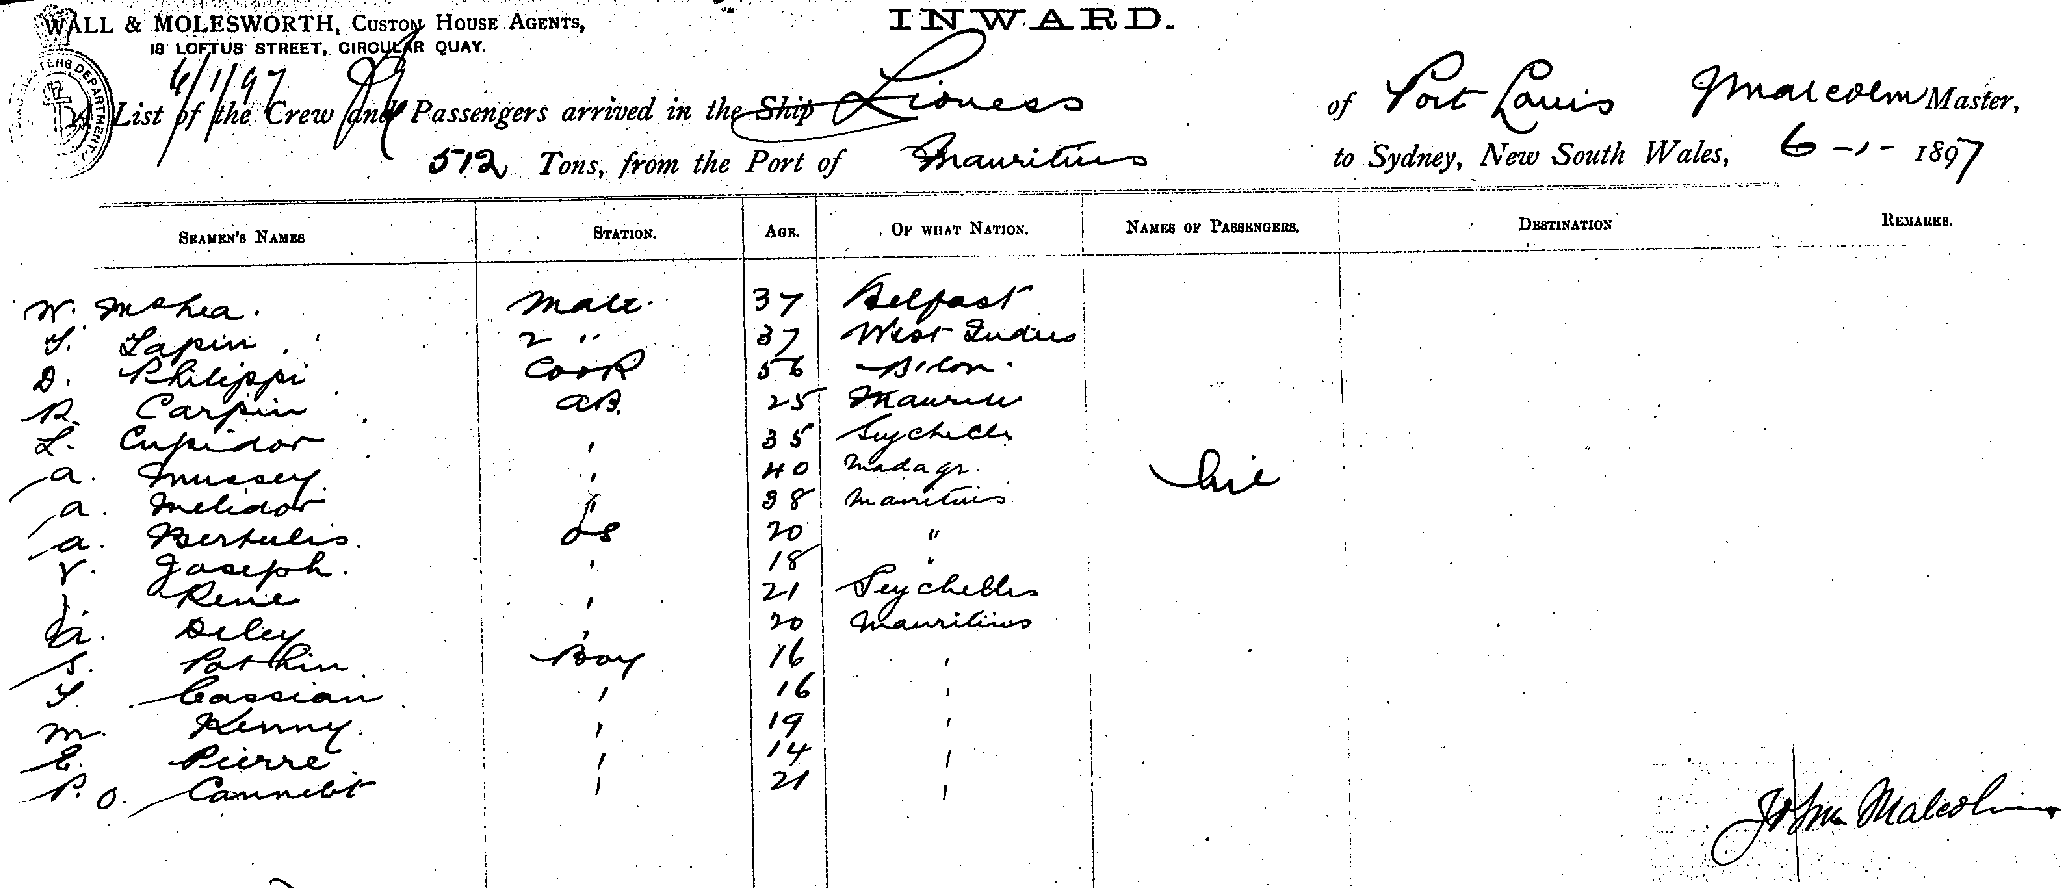 WALL & MOLESWORTH, CUSTOM HOUSE AGENTS,
18 LOFTUS STREET, CIRCULAR QUAY.
INWARD.
6/1/97
A List of the Crew and Passengers arrived in the Ship Lioness of Port Louis J Malcolm Master,
512 Tons, from the Port of Mauritius to Sydney, New South Wales, 6-1-1897
SEAMEN'S NAMES STATION. AGE. OF WHAT NATION. NAMES OF PASSENGERS. DESTINATION REMARKS.
W. McShea. Mate. 37 Belfast
Lapin 2 " 37 West Indies
D. Philippi Cook 56
R. Carpin AB. 25
L. Cupidor , 35 Seychelles
A. Mussey , 40 Madagr. Nil
A. Melidor 38 Mauritius
A. Bertulis. OS 20 "
V. Joseph. , 18 "
Rene , 21 Seychelles
A. Deley , 20 Mauritius
S. Pothin Boy 16 ,
Cassian , 16 ,
M. Kenny. , 19 ,
E. Pierre , 14 ,
P. O. , 21 ,
John Malcolm